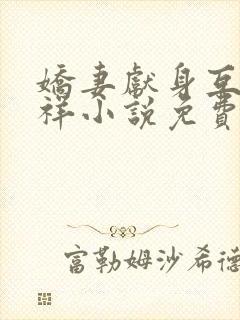 嬌妻獻身互
祥小說免費
富勒姆沙希德